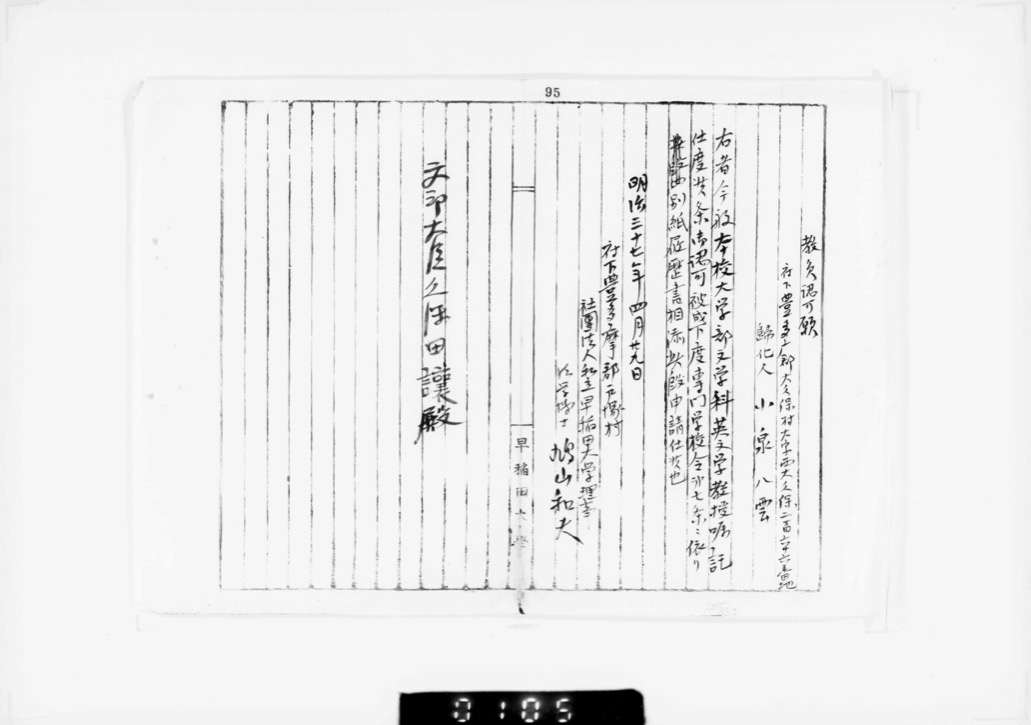 95
教員認可願
府下豊多摩郡大久保村大字西大久保二百六十五番地
歸化人 小泉八雲
右者今般本校大学部文学科英文学教授嘱託
仕度候条御認可被成下度専門学校令第七条ニ依リ
別紙履歴書相添此段申請仕候也
明治三十七年四月廿九日
府下豊多摩郡戸塚村
社團法人私立早稲田大学理事
法学博士 鳩山和夫
早稲田大学
文部大臣久保田譲殿
0105